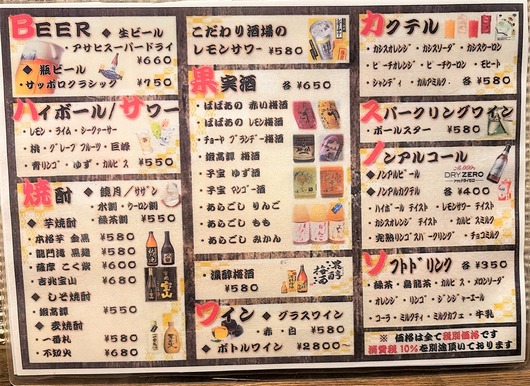 BEER
◆ 生ビール
アサヒスーパードライ
¥660
◆ 瓶ビール
・サッポロクラシック ¥750
ハイボール/サワー
・レモン・ライム・シークァーサー
・桃・グレープフルーツ・巨峰
・青リンゴ・ゆず・カルピス ¥550
焼酎
◆ 鏡月/サザン
・水割・ウーロン割
・緑茶割 ¥550
◆ 芋焼酎
・本格芋 金黒 ¥580
・龍門滝 黒麹 ¥580
・薩摩 こく紫 ¥600
・吉兆宝山 ¥680
◆ しそ焼酎
・鍛高譚 ¥550
◆ 麦焼酎
・一番札 ¥580
・不知火 ¥680
こだわり酒場の
レモンサワー ¥580
果実酒 各 ¥650
・ばばあの 赤い梅酒
・ばばあの レモン梅酒
・チョーヤ ブランデー梅酒
・鍛高譚 梅酒
・子宝 ゆず酒
・子宝 マンゴー酒
・あらごし りんご
・あらごし もも
・あらごし みかん
・濃醇梅酒
¥580
濃醇梅酒
ワイン
◆ グラスワイン
・赤・白 ¥580
◆ ボトルワイン ¥2800
カクテル
・カシスオレンジ・カシスソーダ・カシスウーロン
・ピーチオレンジ・ピーチウーロン・モヒート
・シャンディ・カルアミルク 各 ¥580
スパークリングワイン
・ポールスター ¥580
ノンアルコール
◆ ノンアルビール
DRY ZERO
◆ ノンアルカクテル 各 ¥400
・ハイボール テイスト・レモンサワー テイスト
・カシスオレンジ テイスト・カルピスミルク
・完熟リンゴスパークリング・チョコミルク
ソフトドリンク 各 ¥350
・緑茶・烏龍茶・カルピス・メロンソーダ
・オレンジ・リンゴ・ジンジャーエール
・コーラ・ミルクティ・ミルクカフェ・牛乳
※ 価格は全て税別価格です
消費税10%を別途頂いております。